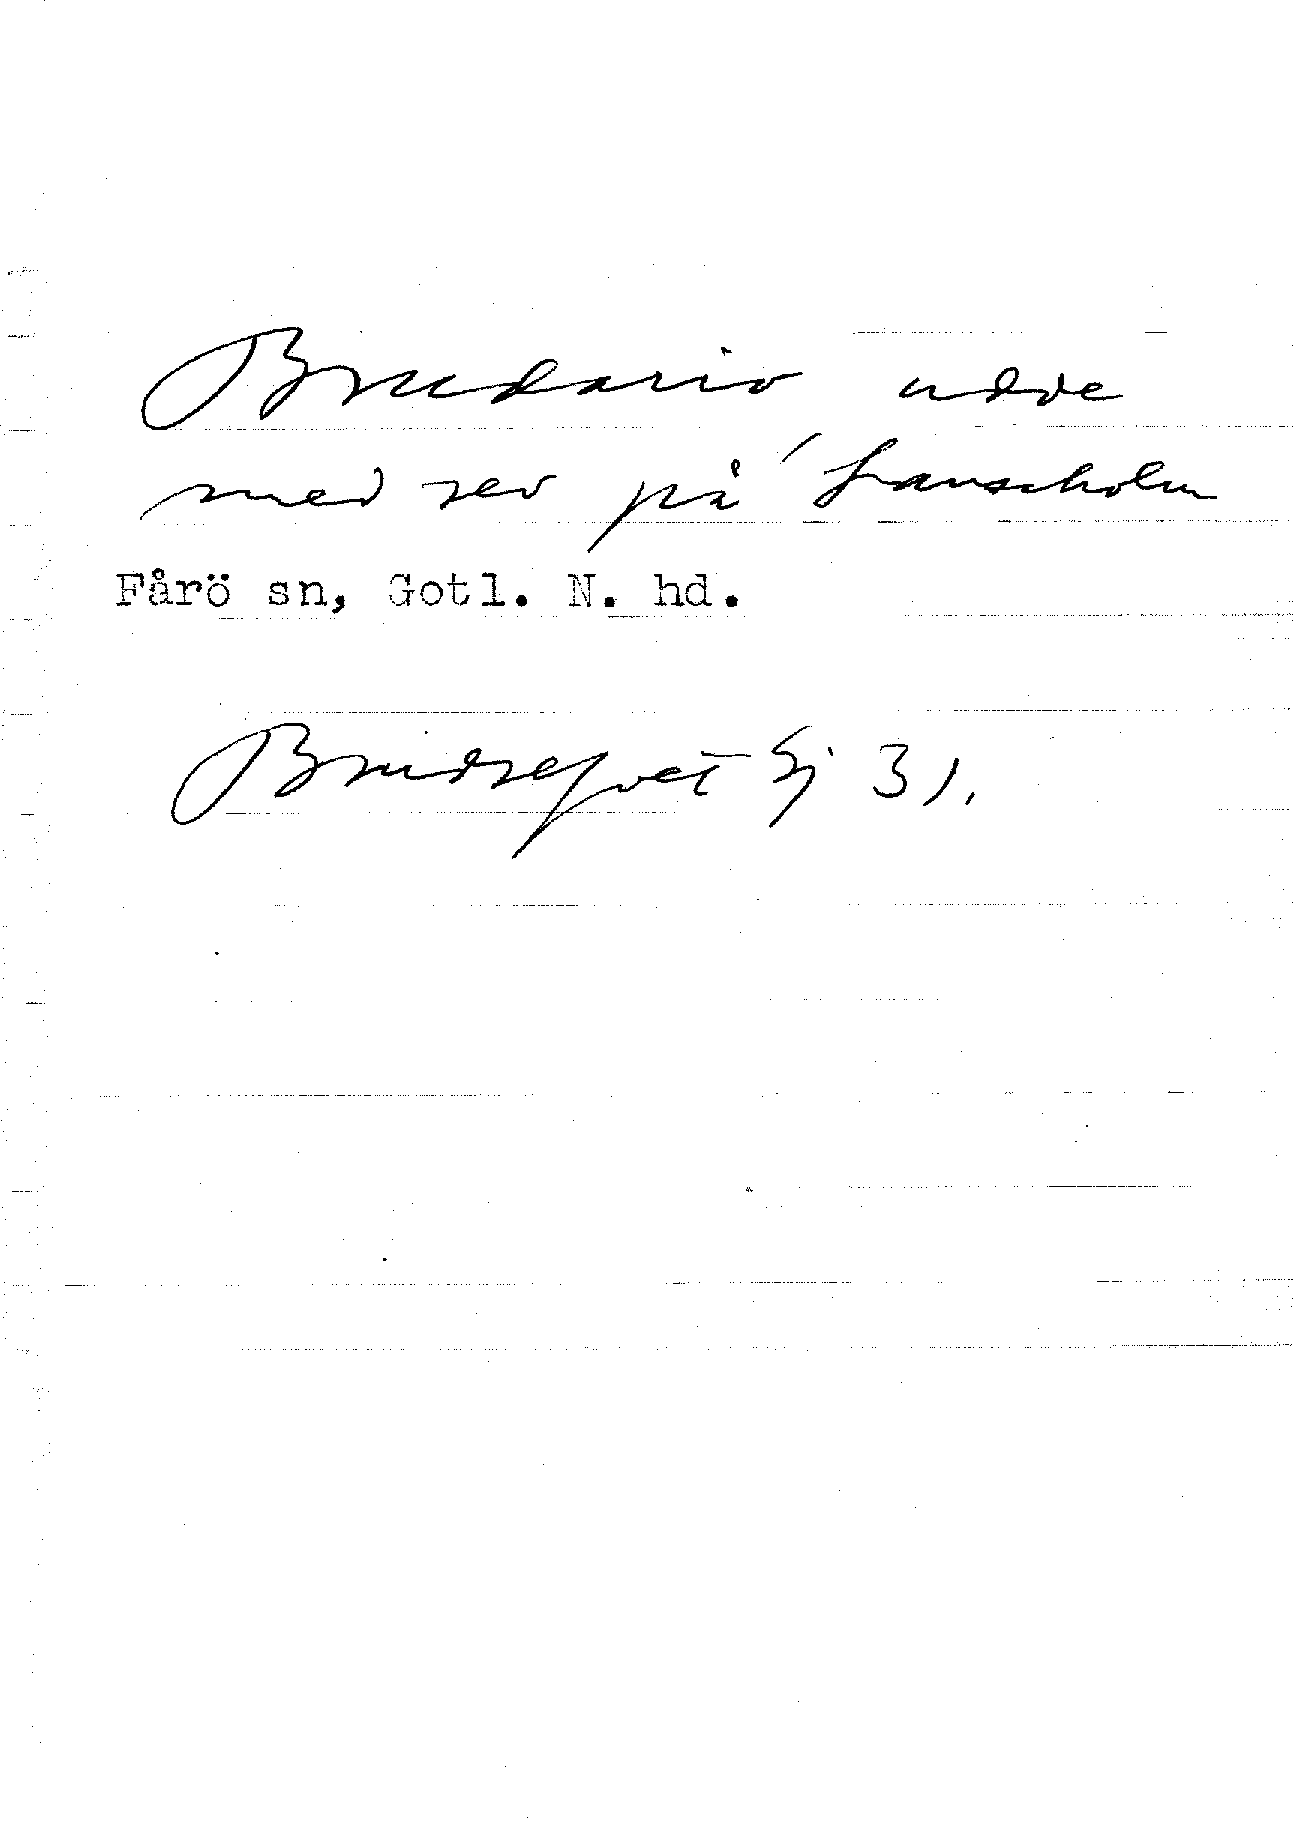 Brudariv udde
med rev på Lansholm
Fårö sn, Gotl. N. hd.
Brudrefvet Sj 31.